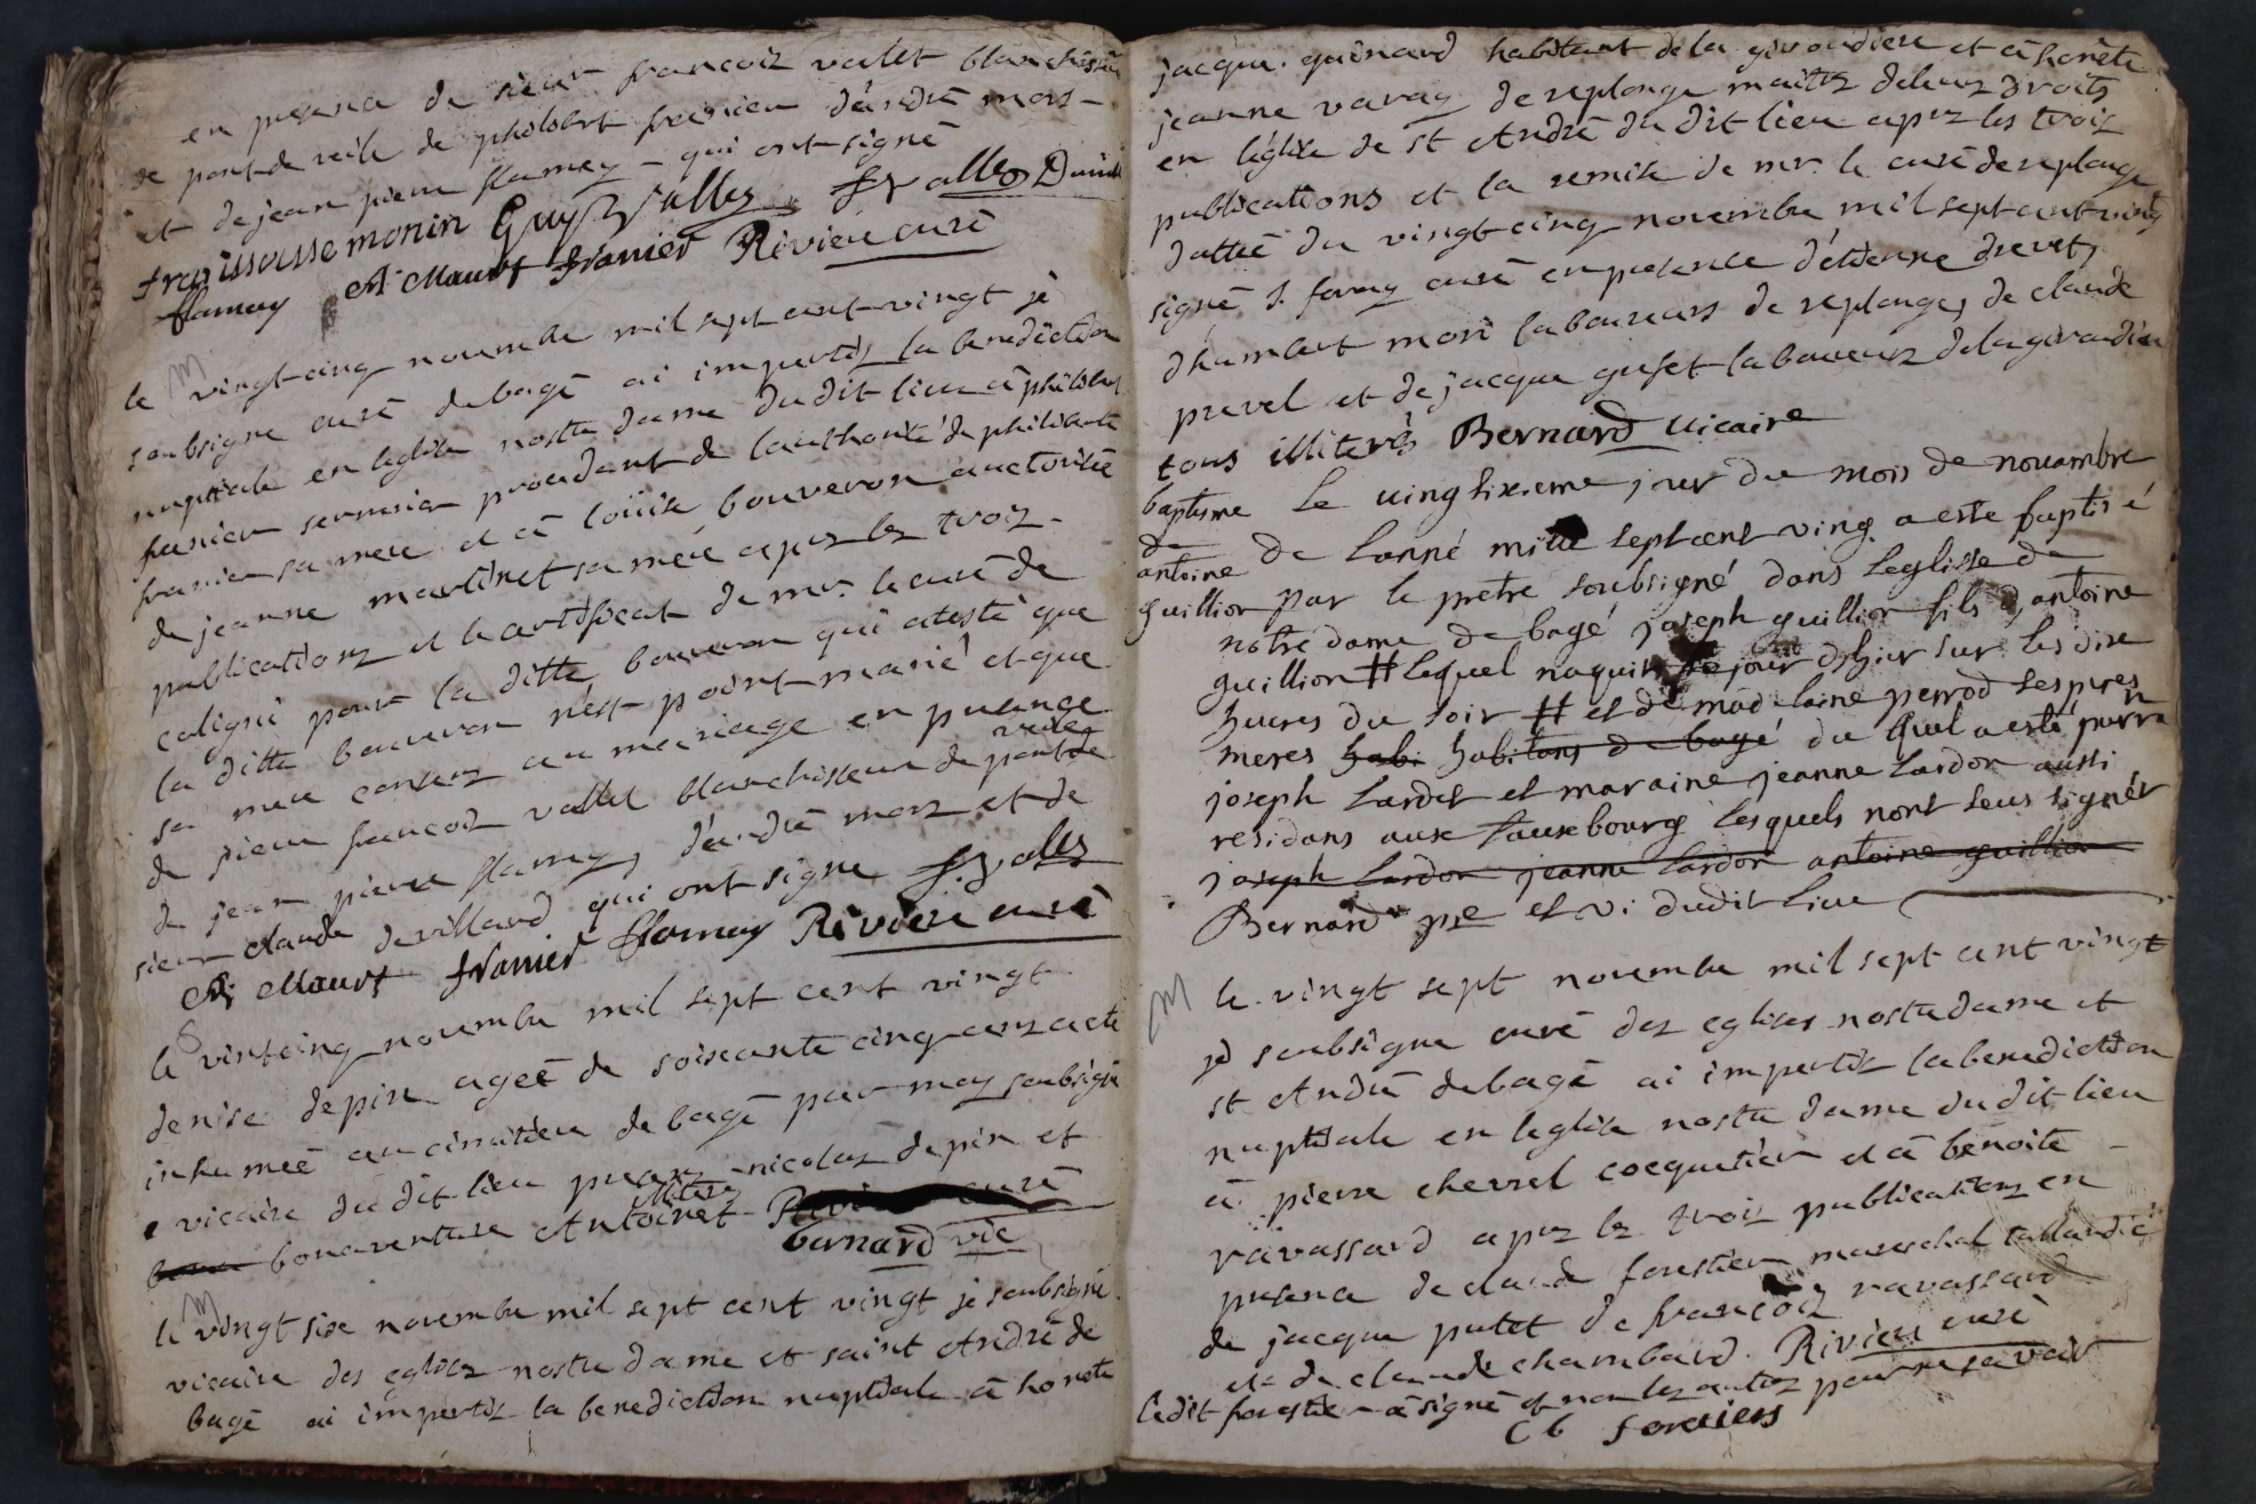 en presence de sieur francois vallet blanchisseur
de pont de veile de philibert franier d'andrē mors
et de jean pierre flamey qui ont signē
franissousse monin Guy Vallez f Vallez
flamay A Maurs franier Riviere curē
M
le vingt cinq novembre mil sept cent vingt jē
soubsigne curē de bagē ai impertis la benediction
nuptiale en leglise nostre dame dudit lieu ā philibert
franier serrurier procedant de lauthoritē de philiberte
franier sa mere et ā loüise bouveron auctorisēe
de jeanne martinet sa mere apres les trois
publications et le certificat de mr. le curē de
coligni pour la ditte bouveron qui ateste que
la ditte bouveron n'est point mariē et que
sa mere consent au mariage en presence
de sieur francois vallet blanchisseur de pont de veile
de jean pierre flamey, d'andrē mors et de
sieur claude devillard qui ont signe f. Vallez
A Maurs franier flamay Riviere curē
S
le vintcinq novembre mil sept cent vingt
denise depin ageē de soixante cinq ans a ete
inhumeē au cimitiere de bagē par moy soubsignē
vicaire du dit lieu presens nicolas depin et
bona bonaventure Antoinet illiteres Riviere curē
bernard vic
M
le vingt six novembre mil sept cent vingt je soubsignē
vicaire des eglises nostre dame et saint Andrē de
bagē ai impertis la benediction nuptiale ā honete
jacque guenard habitant de la givaudiere et ā honēte
jeanne varay de replonge maitres de leurs droits
en lēglise de st Andrē du dit lieu apres les trois
publications et la remise de mr. le curē de replonge
dattēe du vingt cinq novembre mil sept cent vingt
signē S. favry curē en presence d'ētienne drevet,
dhumbert mori laboureurs de replonge, de claude
prevel et de jacque gufet laboureurs de la givaudiere
tous illiterēs Bernard vicaire
baptesme Le vingsixieme jour du mois de novambre
de de lanné mille septcent ving a este baptisé
antoine par le pretre soubsigné dans leglisse de
guillion notre dame de bagé joseph guillion fils d antoine
guillion # lequel naquit le jour d hier sur les dix
heures du soir # et de madelaine perrod ses peres
meres habi habitans de bagé du quel a esté parrain
joseph lardet et maraine jeanne lardon aussi
residans aux fauxbourg lesquels nont seus signér
joseph lardon jeanne lardon antoine guillion
Bernard pre et vi dudit lieu
M
le vingt sept novembre mil sept cent vingt
jē soubsigne curē des eglises nostre dame et
st Andrē de bagē ai impertis la benediction
nuptiale en leglise nostre dame du dit lieu
ā pierre chevrel cocquetier et ā bēnoite
ravassard apres les trois publications en
presence de claude forestier mareschal tallandiē
de jacque putet de francois ravassard
et de claude chambard. Riviere curē
ledit forestier ā signē et non les autres pour ne savoir
Cb foretiers